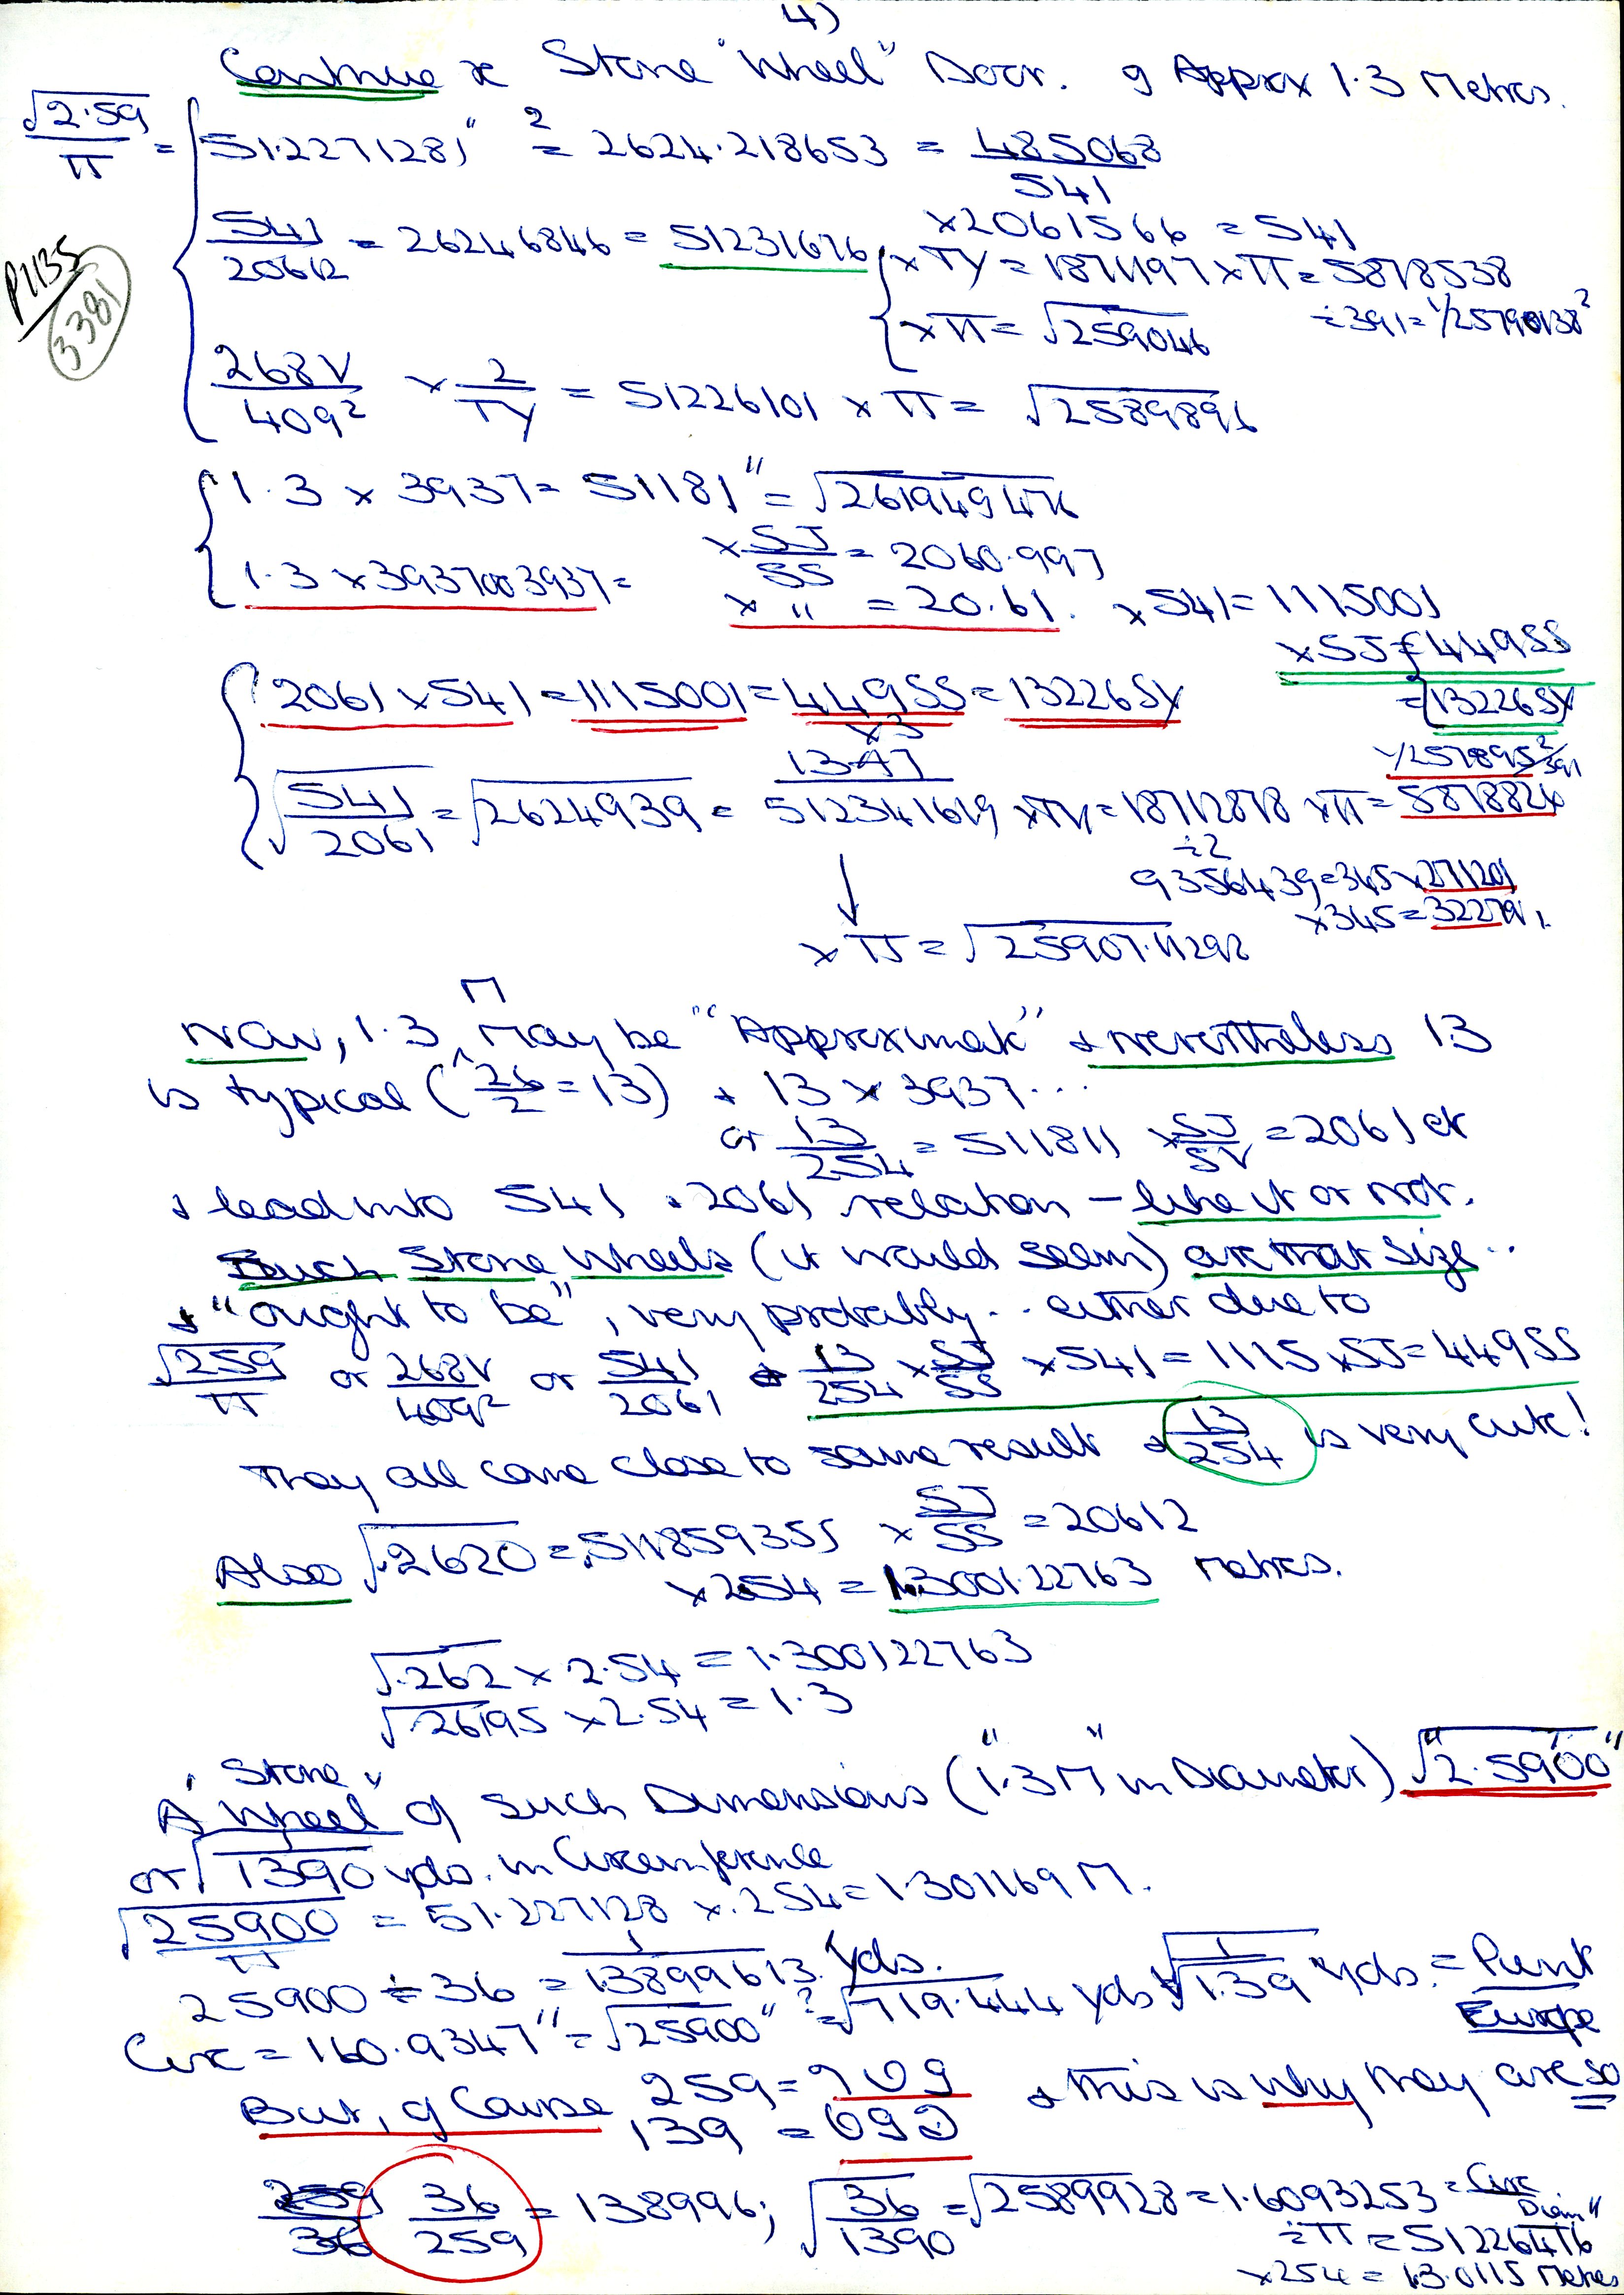 4)
Continue re Stone "Wheel" Door. of Approx 1.3 Metres.
√2.59/π = 51.2271281" ² = 2624.218653 = 485068/541
P1135
3381
541/20612 = 26246846 = 51231676 × 2061566 = 541
× TY = 1871197 × π = 5878538
÷ 391 = 1/25790138²
× π = √259046
268V/409² × 2/TY = 51226101 × π = √2589896
1.3 × 3937 = 51181" = √261949476
× SJ/SS = 2060.997
1.3 × 3937003937 = × " = 20.61. × 541 = 1115001
× SJ = 449SS
= 132265Y
2061 × 541 = 1115001 = 449SS = 132265Y
×3
1347
√541/2061 = √2624939 = 512341619 × TY = 18712878 × π = 5878824
÷2
9356439 = 345 × 271201
× 345 = 32279V1.
× π = √25907.11292
Now, 1.3 M may be "Approximate" & nevertheless 13
is typical (26/2 = 13) & 13 × 3937...
or 13/254 = 511811 × SJ/SV = 2061 etc
& lead into 541 . 2061 relation – like it or not.
Such Stone Wheels (it would seem) are that size..
& "ought to be", very probably.. either due to
√259/π or 268V/409² or 541/2061 & 13/254 × SJ/SS × 541 = 1115 × SJ = 449SS
They all come close to same result & 13/254 is very cute!
Also √.2620 = .511859355 × SJ/SS = 20612
× 254 = 1.300122763 Metres.
√.262 × 2.54 = 1.300122763
√.26195 × 2.54 = 1.3
A "Stone Wheel" of such Dimensions ("1.3M" in Diameter) √"2.5900"
or √1390 yds. in Circumference
√25900/π = 51.227128 × .254 = 1.301169 M.
25900 ÷ 36 = 1/13899613 yds.
Circ = 160.9347" = √25900" ² = √719.444 yds √1/1.39 yds. = Punt
Europe
But, of Course 259 = 709 & this is why they are so
139 = 69
259/36 36/259 = 138996; √36/1390 = √2589928 = 1.6093253 = Circ
Diam"
÷ π = 51226416
× 254 = 13.0115 Metres